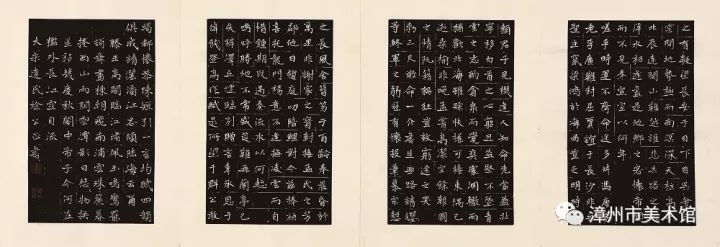 之有數望長安于日下目吳會
於雲間地勢極而南溟深天柱高而
北辰遠關山難越誰悲失路之人
萍水相逢盡是他鄉之客懷帝閽
而不見奉宣室以何年
嗟乎時運不齊命途多舛馮唐易
老李廣難封屈賈誼于長沙非無
聖主竄梁鴻於海曲豈乏明時
賴君子見機達人知命老當益壯
寧移白首之心窮且益堅不墜青
雲之志酌貪泉而覺爽處涸轍而
猶歡北海雖賒扶搖可接東隅已
逝桑榆非晚孟嘗高潔空餘報國
之情阮籍猖狂豈效窮途之哭
勃三尺微命一介書生無路請纓
等終軍之弱冠有懷投筆慕宗愨
之長風舍簪笏于百齡奉晨昏於
萬里非謝家之寶樹接孟氏之芳
鄰他日趨庭叨陪鯉對今茲捧袂
喜托龍門楊意不逢撫凌雲而自
惜鍾期既遇奏流水以何慚
嗚呼勝地不常盛筵難再蘭亭已
矣梓澤丘墟臨別贈言幸承恩于
偉餞登高作賦是所望于群公敢
竭鄙懷恭疏短引一言均賦四韻
俱成請灑潘江各傾陸海云爾
滕王高閣臨江渚佩玉鳴鸞罷
歌舞畫棟朝飛南浦雲珠簾暮
捲西山雨閒雲潭影日悠悠物換
星移幾度秋閣中帝子今何在
檻外長江空自流
漳州市美术馆